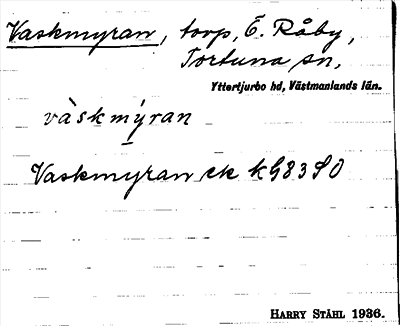 Vaskmyran, torp, Ö. Råby,
Tortuna sn,
Yttertjurbo hd, Västmanlands län.
vàskmýran
Vaskmyran ek kG83SO
HARRY STÅHL 1936.